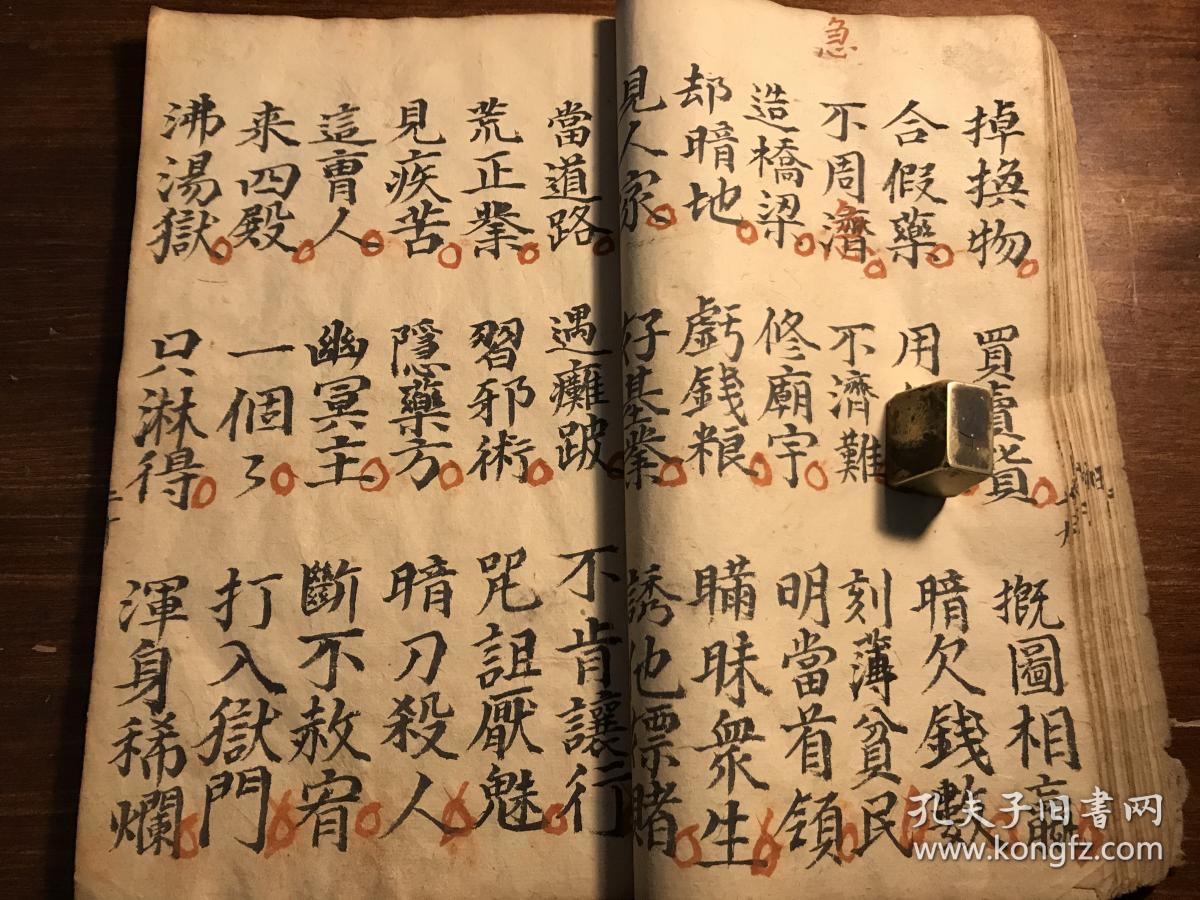 急
掉換物 買賣貨 摡圖相
合假藥 用 暗欠錢數
不周濟 不濟難 刻薄貧民
造橋梁 修廟宇 明當首領
却暗地 虧錢粮 瞞昧眾生
見人家 好基業 誘他嫖賭
當道路 遇癱跛 不肯讓行
荒正業 習邪術 咒詛厭魅
見疾苦 隱藥方 暗刀殺人
這曹人 幽冥主 斷不赦宥
来四殿 一個了 打入獄門
沸湯獄 只淋得 渾身稀爛
孔夫子旧書网
www.kongfz.com